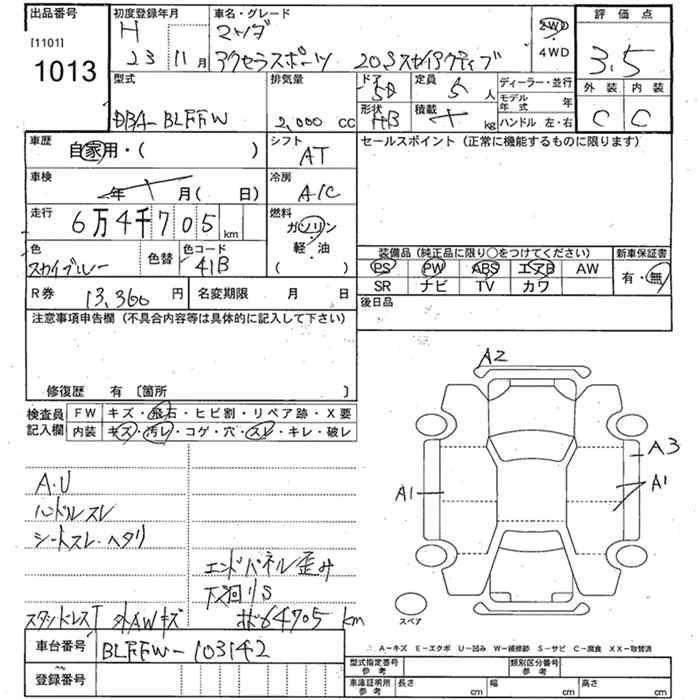 出品番号
[1101]
1013
初度登録年月
H
23 11月
車名・グレード
マツダ
アクセラスポーツ 20Sスカイアクティブ
2WD
4WD
評価点
3.5
外装 内装
C C
型式
DBA-BLFFW
排気量
2,000 cc
ドア
5D
形状
HB
定員
5 人
積載
kg
ディーラー・並行
モデル年式 年
ハンドル 左・右
車歴
自家用・( )
シフト
AT
セールスポイント(正常に機能するものに限ります)
車検
年 月( 日)
冷房
A/C
走行
6万4千705km
燃料
ガソリン
軽・油
( )
色
スカイブルー
色替
色コード
41B
装備品(純正品に限り○をつけてください)
PS PW ABS エアB AW
SR ナビ TV カワ
新車保証書
有・無
R券
13,360円
名変期限 月 日
後日品
注意事項申告欄(不具合内容等は具体的に記入して下さい)
修復歴 有〔箇所 〕
検査員記入欄
FW キズ・飛石・ヒビ割・リペア跡・X要
内装 キズ・汚レ・コゲ・穴・スレ・キレ・破レ
A.U
ハンドルスレ
シートスレ・ヘタリ
エンドパネル歪み
下廻りS
スタッドレスT 外AWキズ
ボ64705km
A2
A3
A1
A1
スペア
A-キズ E-エクボ U-凹み W-補修跡 S-サビ C-腐食 XX-取替済
車台番号
BLFFW-103142
登録番号
型式指定番号
参考
類別区分番号
参考
車庫証明用
参考
長さ cm
幅 cm
高さ cm